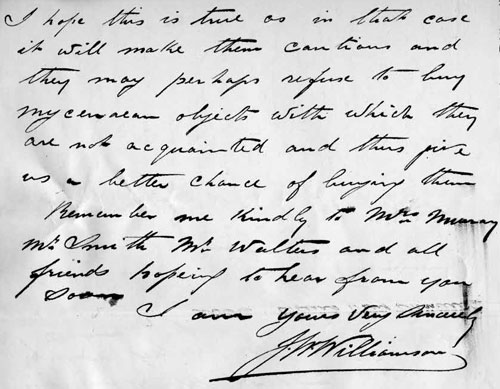 I hope this is true as in that case
it will make them cautious and
they may perhaps refuse to buy
mycenaean objects with which they
are not acquainted and thus give
us a better chance of buying them
Remember me kindly to Mrs Murray
Mr Smith Mr Walters and all
friends hoping to hear from you
soon
I am yours very sincerely
J.W. Williamson